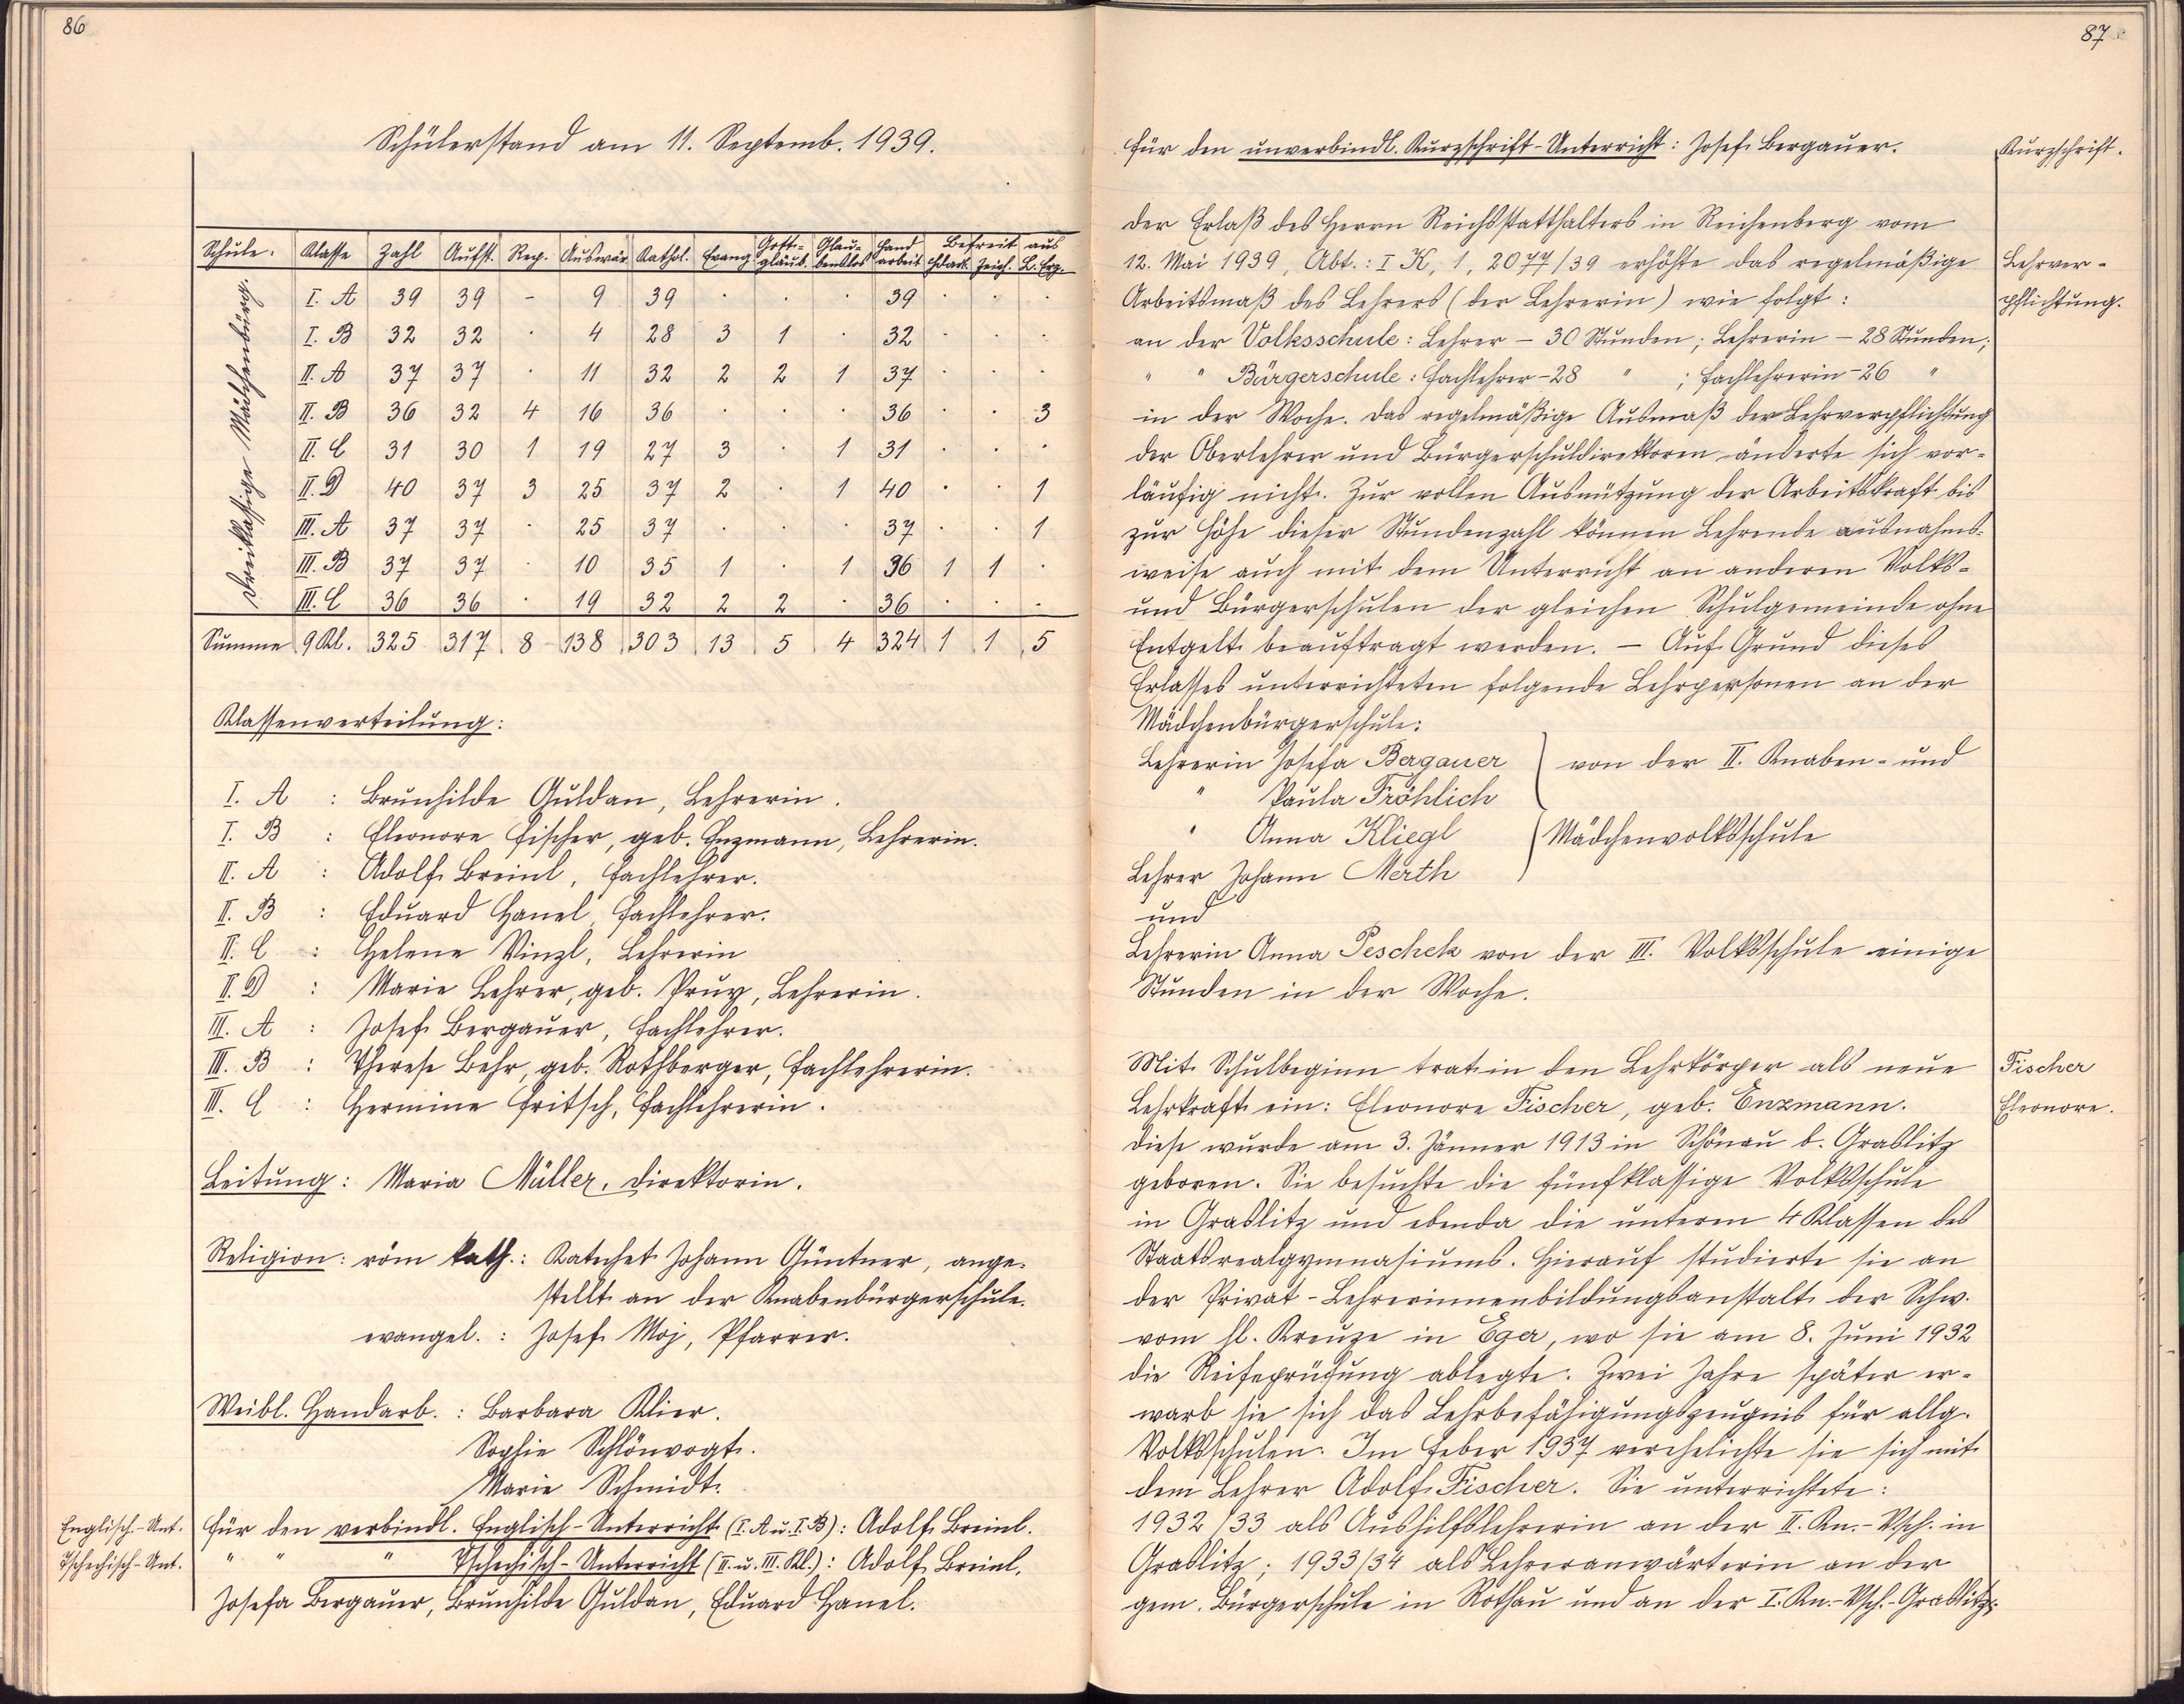 86
Schülerstand am 11. Septemb. 1939.
Schule. Klasse Zahl Aufst. Rep. Auswär. Kathol. Evang. Gott-gläub. Glau-benslos Hand arbeit Befreit aus Zeich. L. Erz.
Dreiklassige Mädchenbürg.
I. A 39 39 - 9 39 . . . 39 . . .
I. B 32 32 . 4 28 3 1 . 32 . . .
II. A 37 37 . 11 32 2 2 1 37 . . .
II. B 36 32 4 16 36 . . . 36 . . 3
II. C 31 30 1 19 27 3 . 1 31 . . .
II. D 40 37 3 25 37 2 . 1 40 . . 1
III. A 37 37 . 25 37 . . . 37 . . 1
III. B 37 37 . 10 35 1 . 1 36 1 1 .
III. C 36 36 . 19 32 2 2 . 36 . . .
Summe 9 Kl. 325 317 8 138 303 13 5 4 324 1 1 5
Klassenverteilung:
I. A : Brunhilde Guldan, Lehrerin.
I. B : Eleonore Fischer, geb. Enzmann, Lehrerin.
II. A : Adolf Breinl, Fachlehrer.
II. B : Eduard Hanel, Fachlehrer.
II. C : Helene Vinzl, Lehrerin
II. D : Marie Lehrer, geb. Lehrerin.
III. A : Josef Bergauer, Fachlehrer.
III. B : Therese Behr, geb. Rothberger, Fachlehrerin.
III. C : Hermine Fritsch, Fachlehrerin.
Leitung: Maria Müller, Direktorin.
Religion: röm kath.: Katechet Johann Güntner, ange-
stellt an der Knabenbürgerschule.
evangel. : Josef Moj, Pfarrer.
Weibl. Handarb. : Barbara Klier.
Sophie Schlönvogt.
Marie Schmidt.
Englisch-Unt.
Für den verbindl. Englisch-Unterricht (I. A u. I. B): Adolf Breinl.
Tschechisch-Unt.
" " " Tschechisch-Unterricht (II. u. III. Kl.): Adolf Breinl,
Josefa Bergauer, Brunhilde Guldan, Eduard Hanel.
87
Für den unverbindl. Kurzschrift-Unterricht: Josef Bergauer.
Kurzschrift.
Der Erlaß des Herrn Reichsstatthalters in Reichenberg vom
12. Mai 1939, Abt.: I K, 1, 2077/39 erhöhte das regelmäßige
Lehrver-
Arbeitsmaß des Lehrers (der Lehrerin) wie folgt:
pflichtung.
an der Volksschule: Lehrer – 30 Stunden; Lehrerin – 28 Stunden;
" " Bürgerschule: Fachlehrer – 28 " ; Fachlehrerin – 26 "
in der Woche. Das regelmäßige Ausmaß der Lehrverpflichtung
der Oberlehrer und Bürgerschuldirektoren änderte sich vor-
läufig nicht. Zur vollen Ausnützung der Arbeitskraft bis
zur Höhe dieser Stundenzahl können Lehrende ausnahms-
weise auch mit dem Unterricht an anderen Volks-
und Bürgerschulen der gleichen Schulgemeinde ohne
Entgelt beauftragt werden. – Auf Grund dieses
Erlasses unterrichteten folgende Lehrpersonen an der
Mädchenbürgerschule:
Lehrerin Josefa Bergauer von der II. Knaben- und
" Paula Fröhlich
" Anna Kliegl Mädchenvolksschule
Lehrer Johann Merth
und
Lehrerin Anna Peschek von der III. Volksschule einige
Stunden in der Woche.
Mit Schulbeginn trat in den Lehrkörper als neue
Fischer
Lehrkraft ein: Eleonore Fischer, geb. Enzmann.
Eleonore.
Diese wurde am 3. Jänner 1913 in Schönau b. Graslitz
geboren. Sie besuchte die fünfklassige Volksschule
in Graslitz und ebenda die unteren 4 Klassen des
Staatsrealgymnasiums. Hierauf studierte sie an
der Privat-Lehrerinnenbildungsanstalt der Schw.
vom hl. Kreuze in Eger, wo sie am 8. Juni 1932
die Reifeprüfung ablegte. Zwei Jahre später er-
warb sie sich das Lehrbefähigungszeugnis für allg.
Volksschulen. Im Feber 1937 verehelichte sie sich mit
dem Lehrer Adolf Fischer. Sie unterrichtete:
1932/33 als Aushilfslehrerin an der II. Kn.-Vsch. in
Graslitz; 1933/34 als Lehreranwärterin an der
gem. Bürgerschule in Rothau und an der I. Kn.-Vsch.-Graslitz;